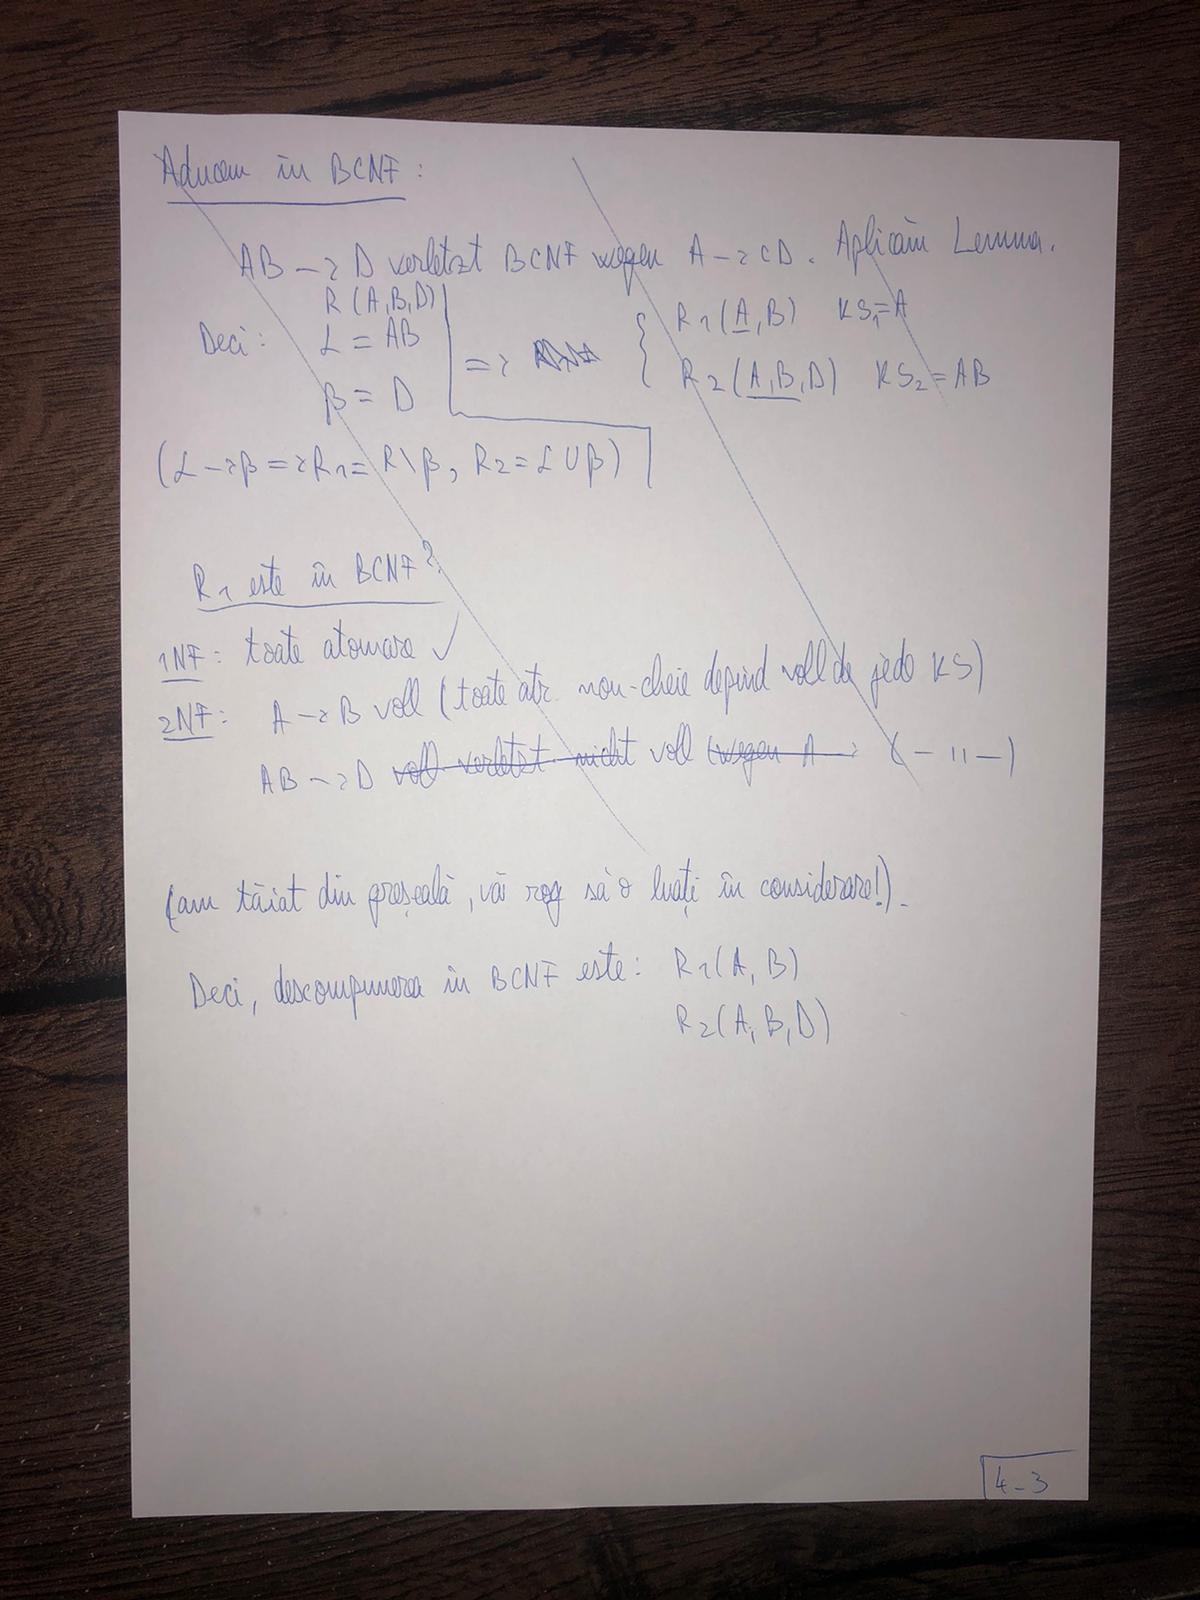 Aducem în BCNF:
AB -> D verletzt BCNF wegen A -> CD. Aplicăm Lemma.
R (A,B,D)
Deci: α = AB
β = D
=> { R1(A,B) KS1=A
R2(A,B,D) KS2=AB
(α -> β => R1 = R\β, R2 = α∪β)
R1 este în BCNF?
1NF: toate atomare ✓
2NF: A -> B voll (toate atr. non-cheie depind voll de jede KS)
AB -> D voll verletzt nicht voll (wegen A -> (-11-)
(am tăiat din greșeală, vă rog să o luați în considerare!).
Deci, descompunerea în BCNF este: R1(A,B)
R2(A,B,D)
4-3